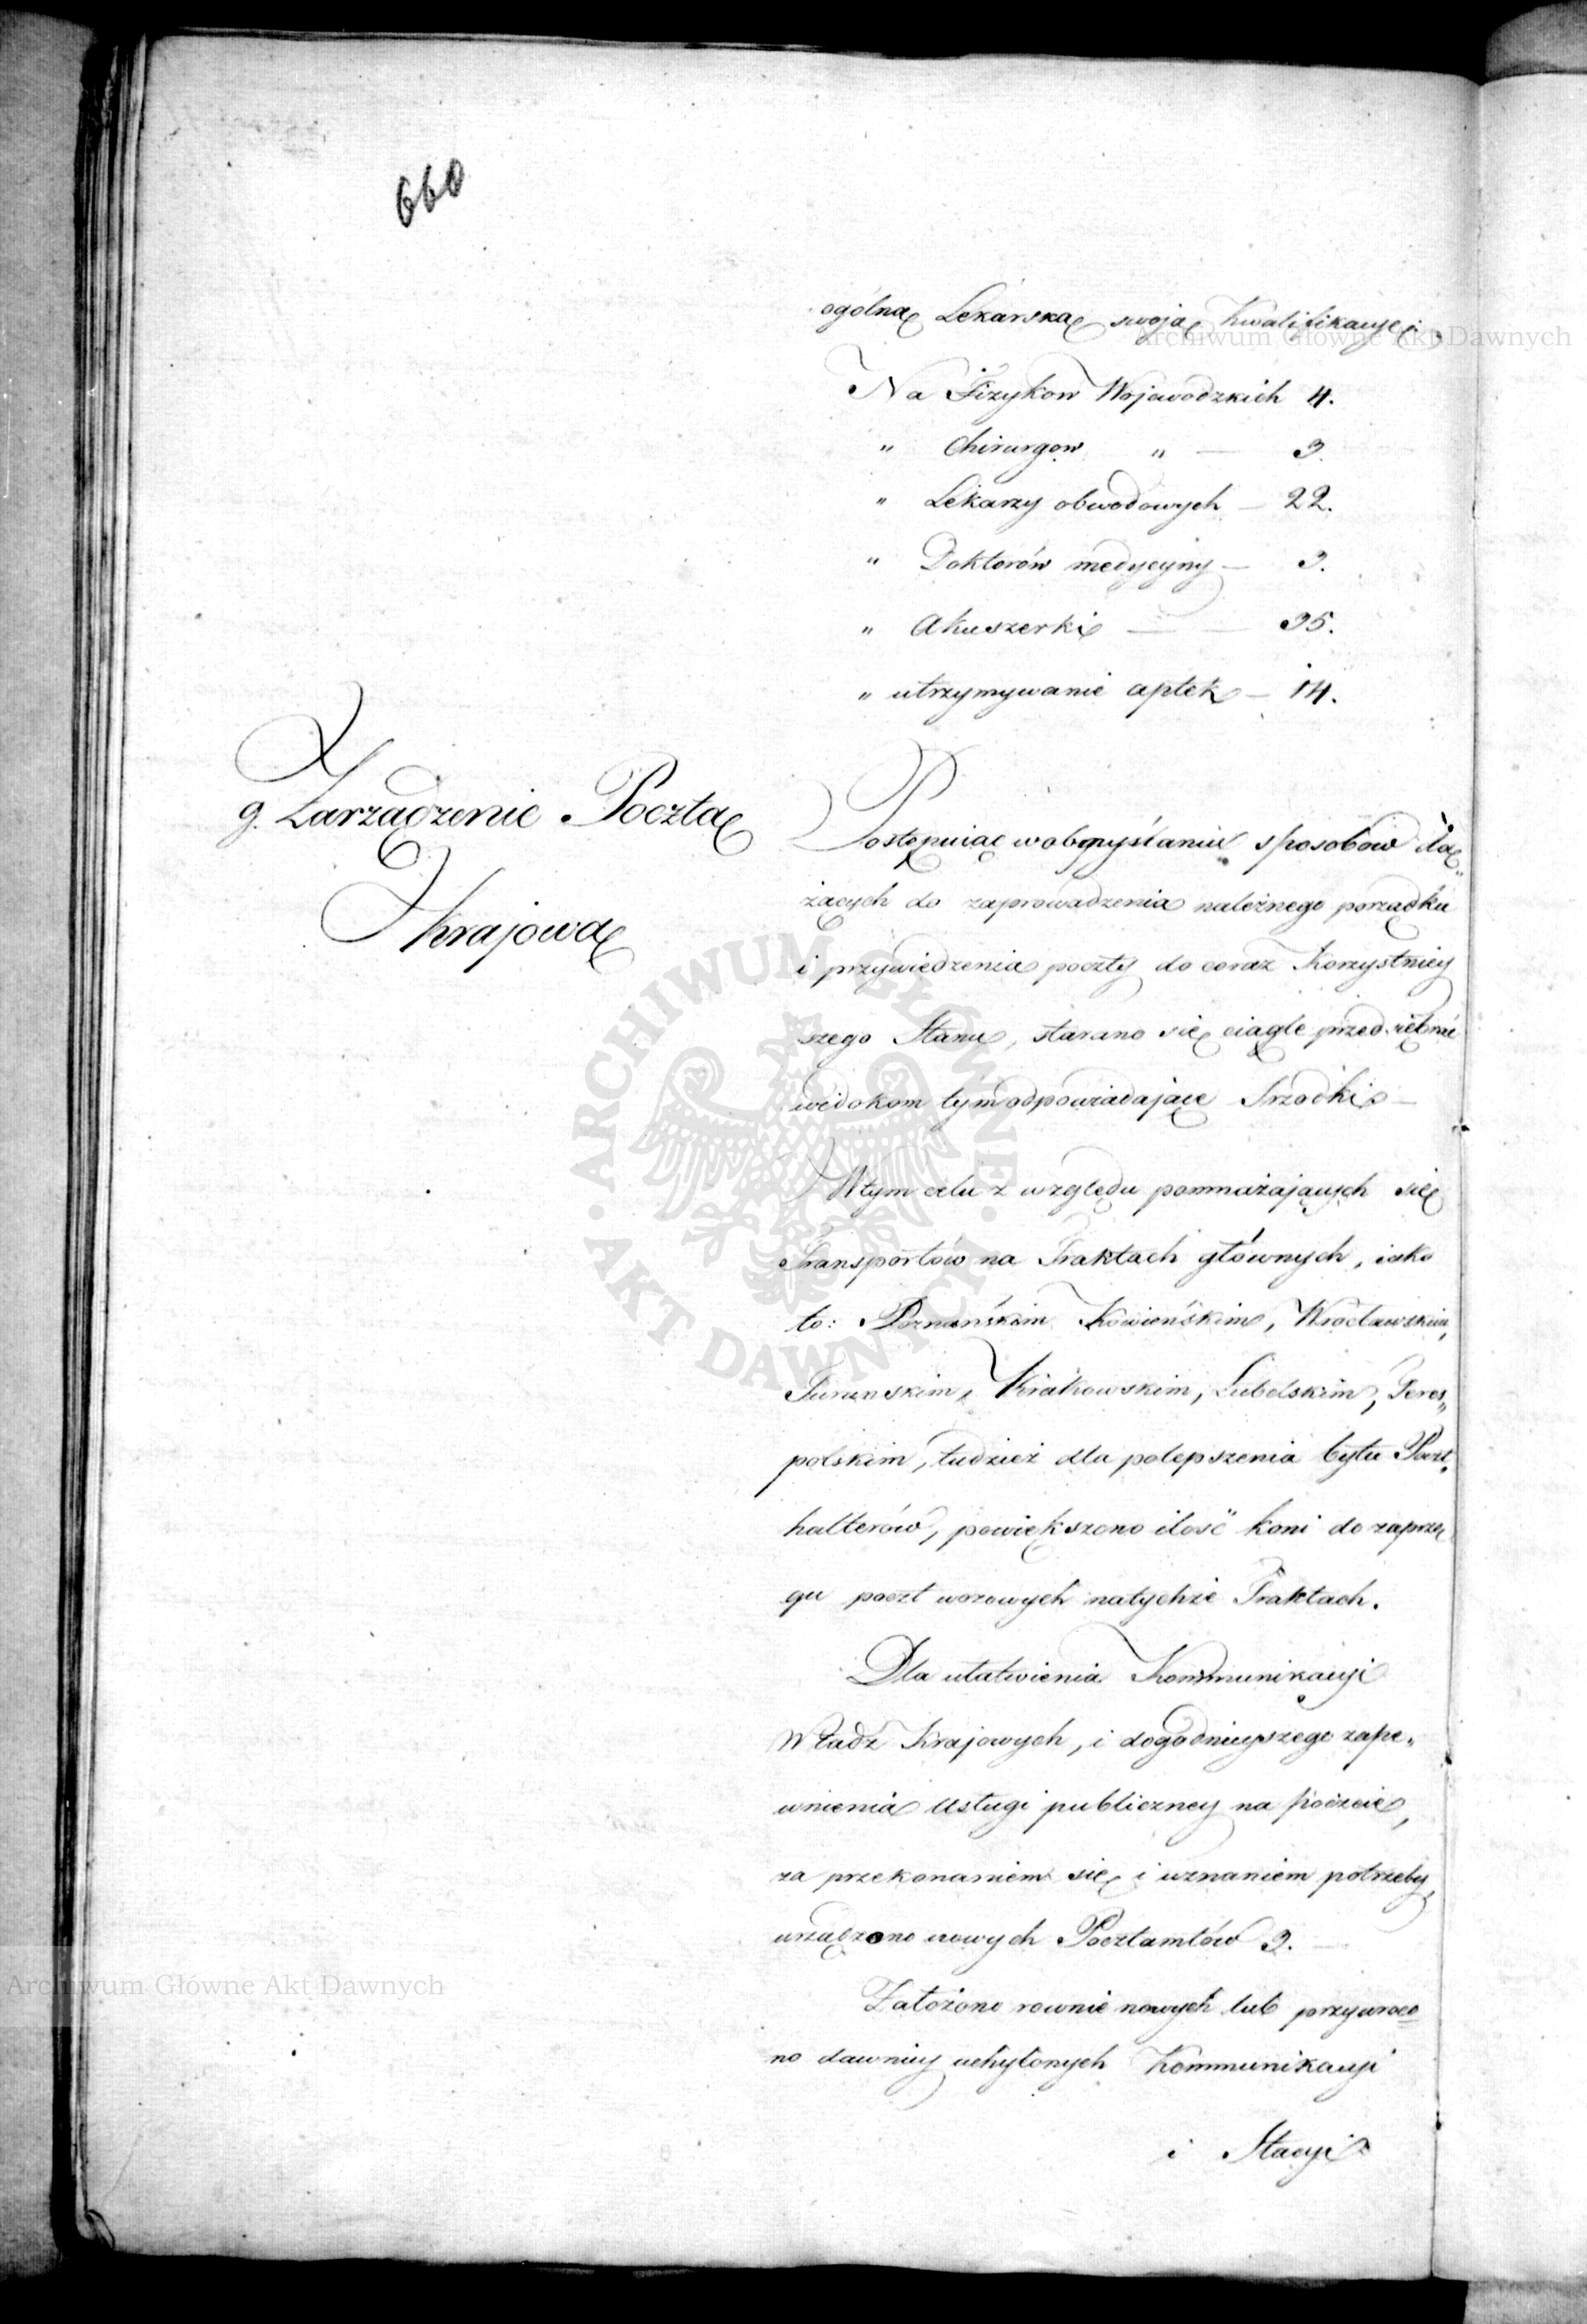 660
ogólną Lekarską swoją Kwalifikacyę:
Na Fizykow Wojewodzkich 4.
" Chirurgow " — 3.
" Lekarzy obwodowych — 22.
" Doktorów medycyny — 3.
" Akuszerki — — 35.
" utrzymywanie aptek — 14.
g. Zarządzenie Pocztą
Krajową
Postępuiąc w obmyślaniu sposobów dą„
żących do zaprowadzenia należnego porządku
i przywiedzenia poczty do coraz Korzystniey
szego Stanu, starano się ciągle przedsiębrać
widokom tym odpowiadające Srzodki —
W tym celu z względu pomnażających się
Transportów na Traktach głównych, iako
to: Poznańskim Kowieńskim, Wrocławskim,
Toruńskim, Krakowskim, Lubelskim, Teres„
polskim, tudzież dla polepszenia bytu Poczt„
halterów, powiększono ilość koni do zaprzę
gu poczt wozowych na tychże Traktach.
Dla ułatwienia Kommunikacyi
Władz Krajowych, i dogodnieyszego zape„
wnienia usługi publiczney na poczcie,
za przekonaniem się i uznaniem potrzeby
urządzono nowych Pocztamtów 3. —
Założono rownie nowych lub przywroco
no dawniey uchylonych Kommunikacyi
i Stacyi
Archiwum Główne Akt Dawnych
ARCHIWUM GŁÓWNE AKT DAWNYCH
Archiwum Główne Akt Dawnych